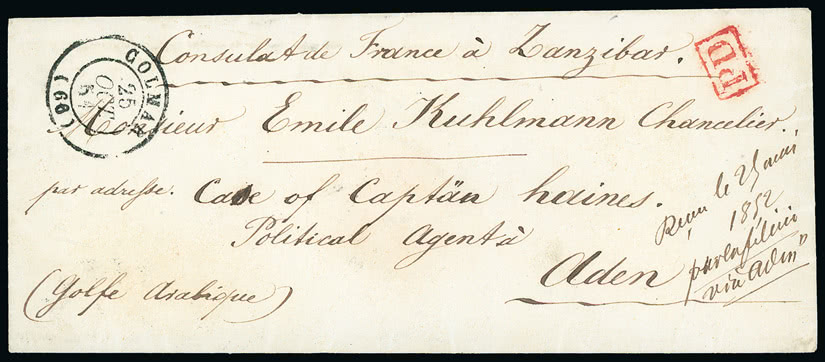 Consulat de France à Zanzibar.
PD
COLMAR
25
OCT
51
(66)
Monsieur Emile Kuhlmann Chancelier.
par adresse. Case of Captän haines.
Political Agent à
Aden
(Golfe Arabique)
Reçu le 25
1852
via aden